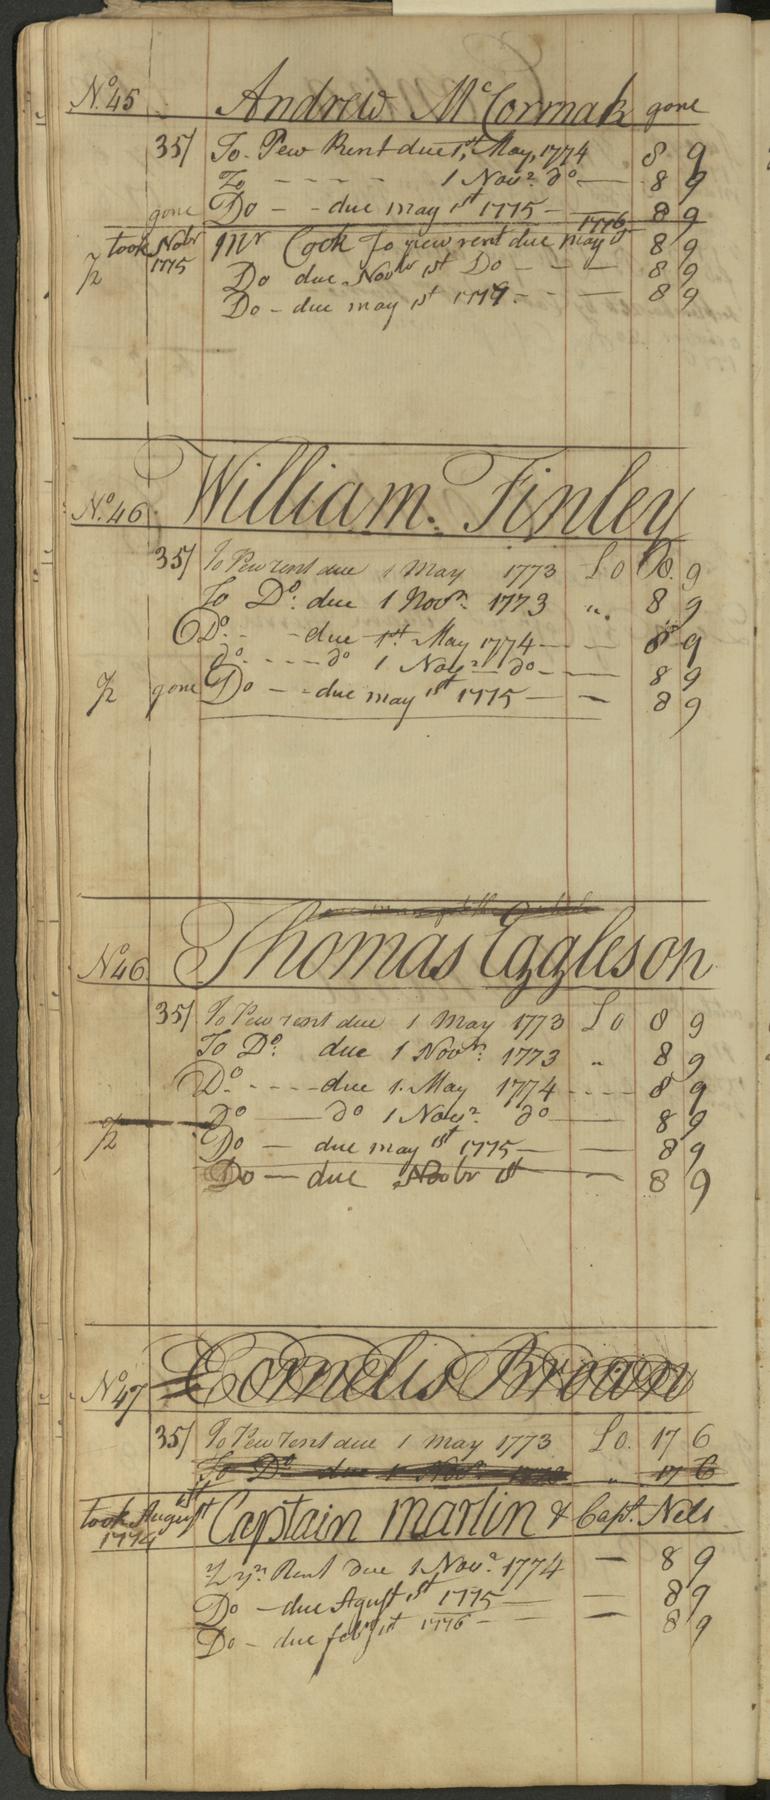 No. 45 Andrew McCormak gone
35/ To Pew Rent due 1st, May, 1774 8 9
To - - - - 1 Novr. do — 8 9
gone Do - - due may 1st 1775 — 8 9
took Nobr 1775 Mr Cook To pew rent due may 1776 8 9
1/2 Do due Nobr 1st Do - - — 8 9
Do - due may 1st 1779 - - — 8 9
No. 46. William. Finley
35/ To Pew rent due 1 May 1773 £ 0 8. 9
To Do: due 1 Novr. 1773 „ 8 9
Do. - - due 1st. May 1774 — — 8 9
do. - - - - do 1 Novr. do - — 8 9
1/2 gone Do - - due may 1st 1775 — — 8 9
No. 46. Thomas Eggleson
35/ To Pew rent due 1 May 1773 £ 0 8 9
To Do. due 1 Novr: 1773 „ 8 9
Do. - - - - due 1. May 1774 - - - - 8 9
Do — do 1 Novr. do — 8 9
1/2 Do — due may 1st 1775 — — 8 9
Do — due Nobr 1st — 8 9
No. 47 Cornelis Brown
35/ To Pew rent due 1 May 1773 £ 0. 17 6
To Do due 1 Novr. 1773 „ 17 6
took August 1st 1774 Captain Martin & Capt. Nels
Rent due 1 Novr. 1774 — 8 9
Do — due Agust 1st 1775 — — 8 9
Do - due febry 1st 1776 - - — 8 9